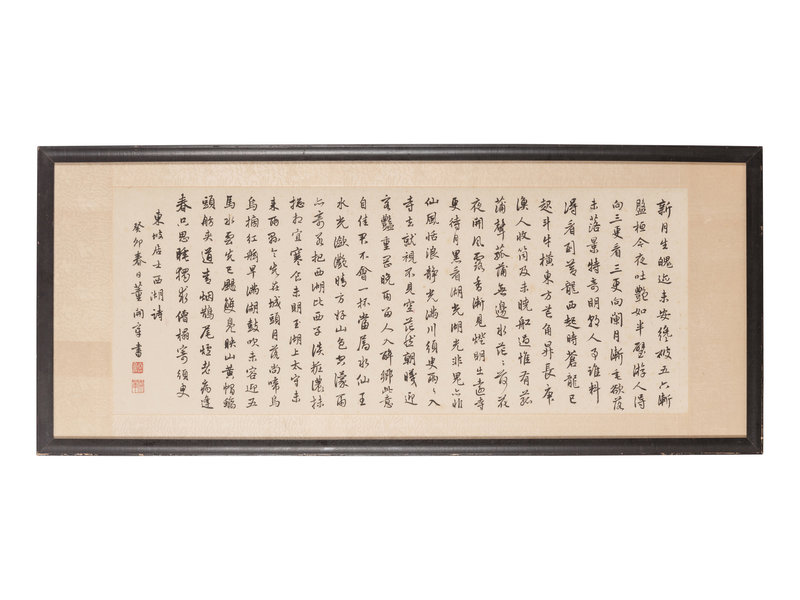 新月生魄迹未安纔破五六漸
盤桓今夜吐艷如半璧游人得
向三更看三更向闌月漸垂欲落
未落景特奇明朝人事誰料
得看到蒼龍西起時蒼龍已
起斗牛橫東方芒角昇長庚
漁人收筒及未曉船過惟有菰
蒲聲菰蒲無邊水茫茫荷花
夜開風露香漸見燈明出遠寺
更待月黑看湖光湖光非鬼亦非
仙風恬浪靜光滿川須臾兩兩入
寺去就視不見空茫然朝曦迎
客豔重岡晚雨留人入醉鄉此意
自佳君不會一杯當屬水仙王
水光瀲灩晴方好山色空濛雨
亦奇若把西湖比西子淡粧濃抹
總相宜寒食未明至湖上太守未
来兩縣令先在城頭月落尚啼烏
烏榜紅舷早滿湖鼓吹未容迎五
馬水雲先已颺雙鳧映山黃帽螭
頭舫夾道青烟鵲尾爐老病逢
春只思睡獨求僧榻寄須臾
東坡居士西湖詩
癸卯春日董開章書